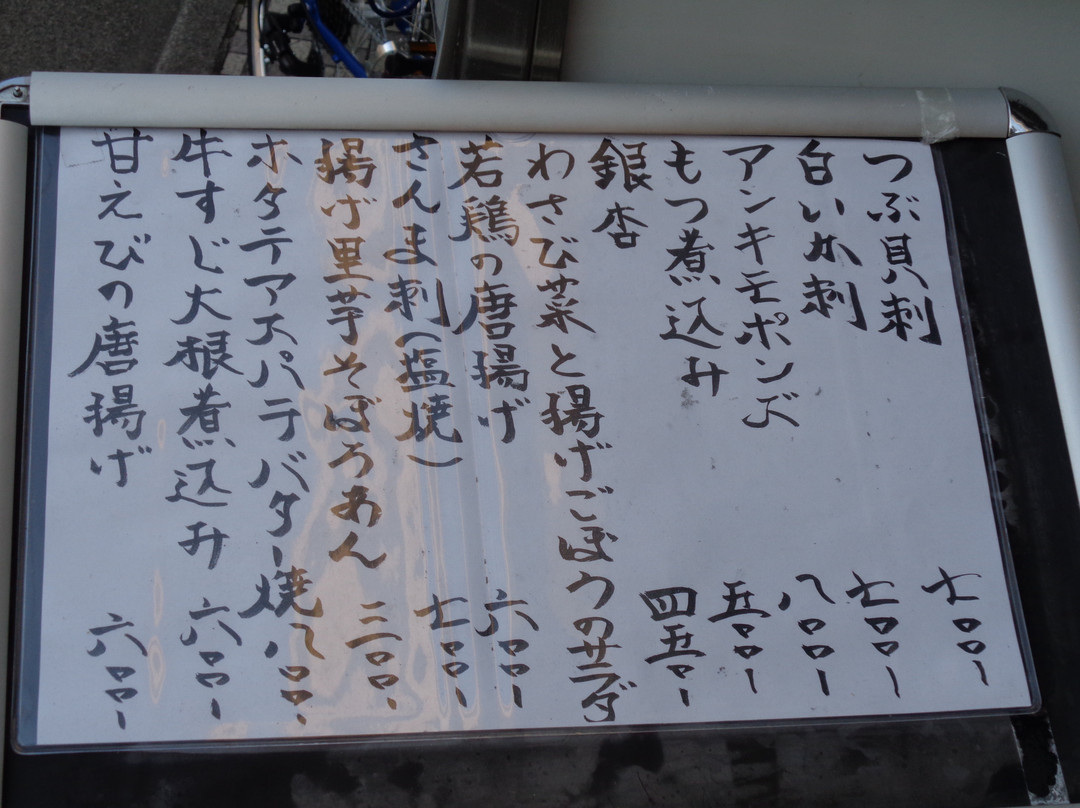 つぶ貝刺 七〇〇ー
白いか刺 七〇〇ー
アンキモポンズ 八〇〇ー
もつ煮込み 五〇〇ー
銀杏 四五〇ー
わさび菜と揚げごぼうのサラダ
若鶏の唐揚げ 六〇〇ー
さんま刺(塩焼) 七〇〇ー
揚げ里芋そぼろあん 三〇〇ー
ホタテアスパラバター焼 八〇〇ー
牛すじ大根煮込み 六〇〇ー
甘えびの唐揚げ 六〇〇ー